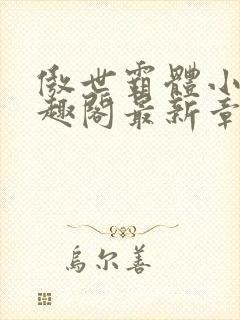 傲世霸體小
趣閣最新章
烏尔善